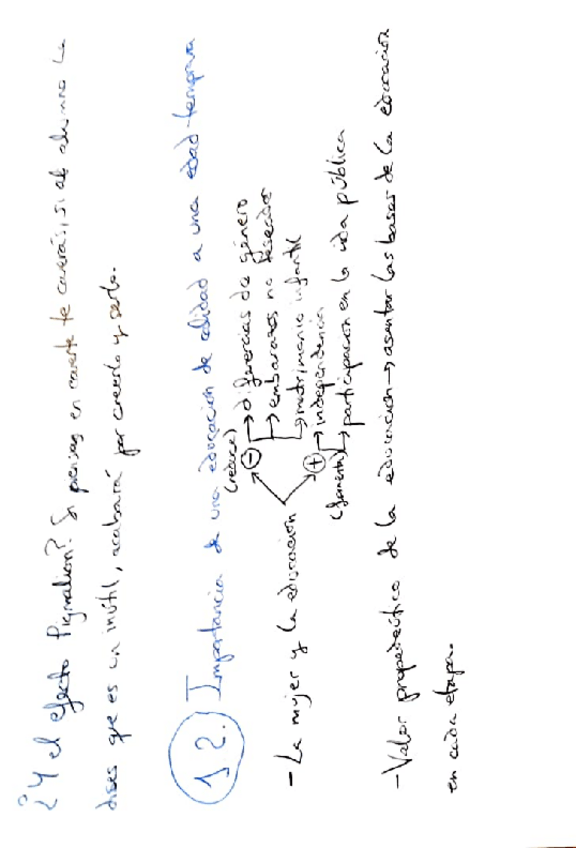 ¿Y el efecto Pigmalion? Si piensas en caerte te caerás, si al alumno le
dices que es un inútil, acabará por creerlo y serlo.
12. Importancia de una educación de calidad a una edad temprana
(reduce)
- La mujer y la educación ⊖ → diferencias de género
→ embarazos no deseados
→ matrimonio infantil
⊕ → independencia
(fomenta) → participación en la vida pública
- Valor propedéutico de la educación → asentar las bases de la educación
en cada etapa.